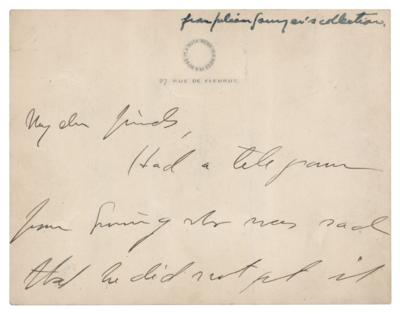 from Julian Sawyer's collection.
27 RUE DE FLEURUS
My dear friends,
Had a telegram
from who was sad
that he did not get it